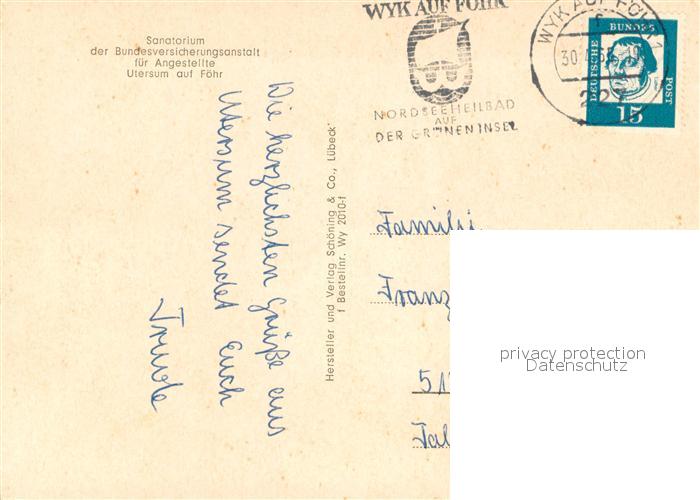 Sanatorium
der Bundesversicherungsanstalt
für Angestellte
Utersum auf Föhr
Die herzlichsten Grüße aus
Utersum sendet Euch
Trude
Hersteller und Verlag Schöning & Co., Lübeck
Bestellnr. Wy 2010-f
WYK AUF FÖHR
NORDSEEHEILBAD
AUF
DER GRÜNEN INSEL
WYK AUF FÖHR 1
DEUTSCHE BUNDES POST
15
Familie
Franz
privacy protection
Datenschutz